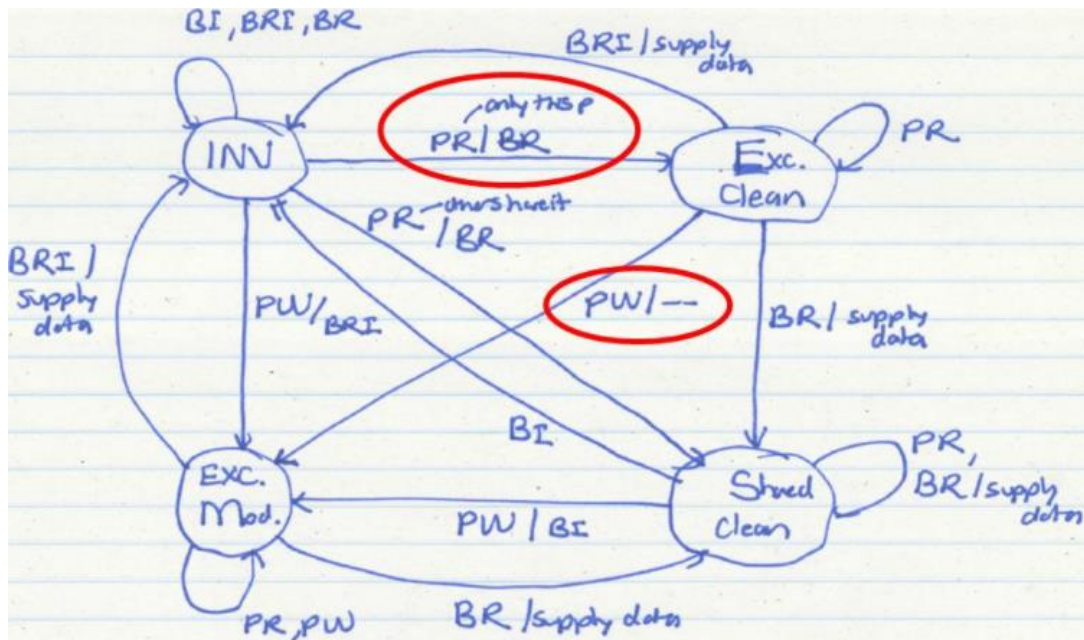 BI, BRI, BR
BRI / supply
data
only this P
PR / BR
INV
Exc.
Clean
PR
PR
/ BR
BRI /
supply
data
PW /
BRI
PW / --
BR / supply
data
BI
EXC.
Mod.
PW / BI
Shared
Clean
PR,
BR / supply
data
PR, PW
BR / supply data